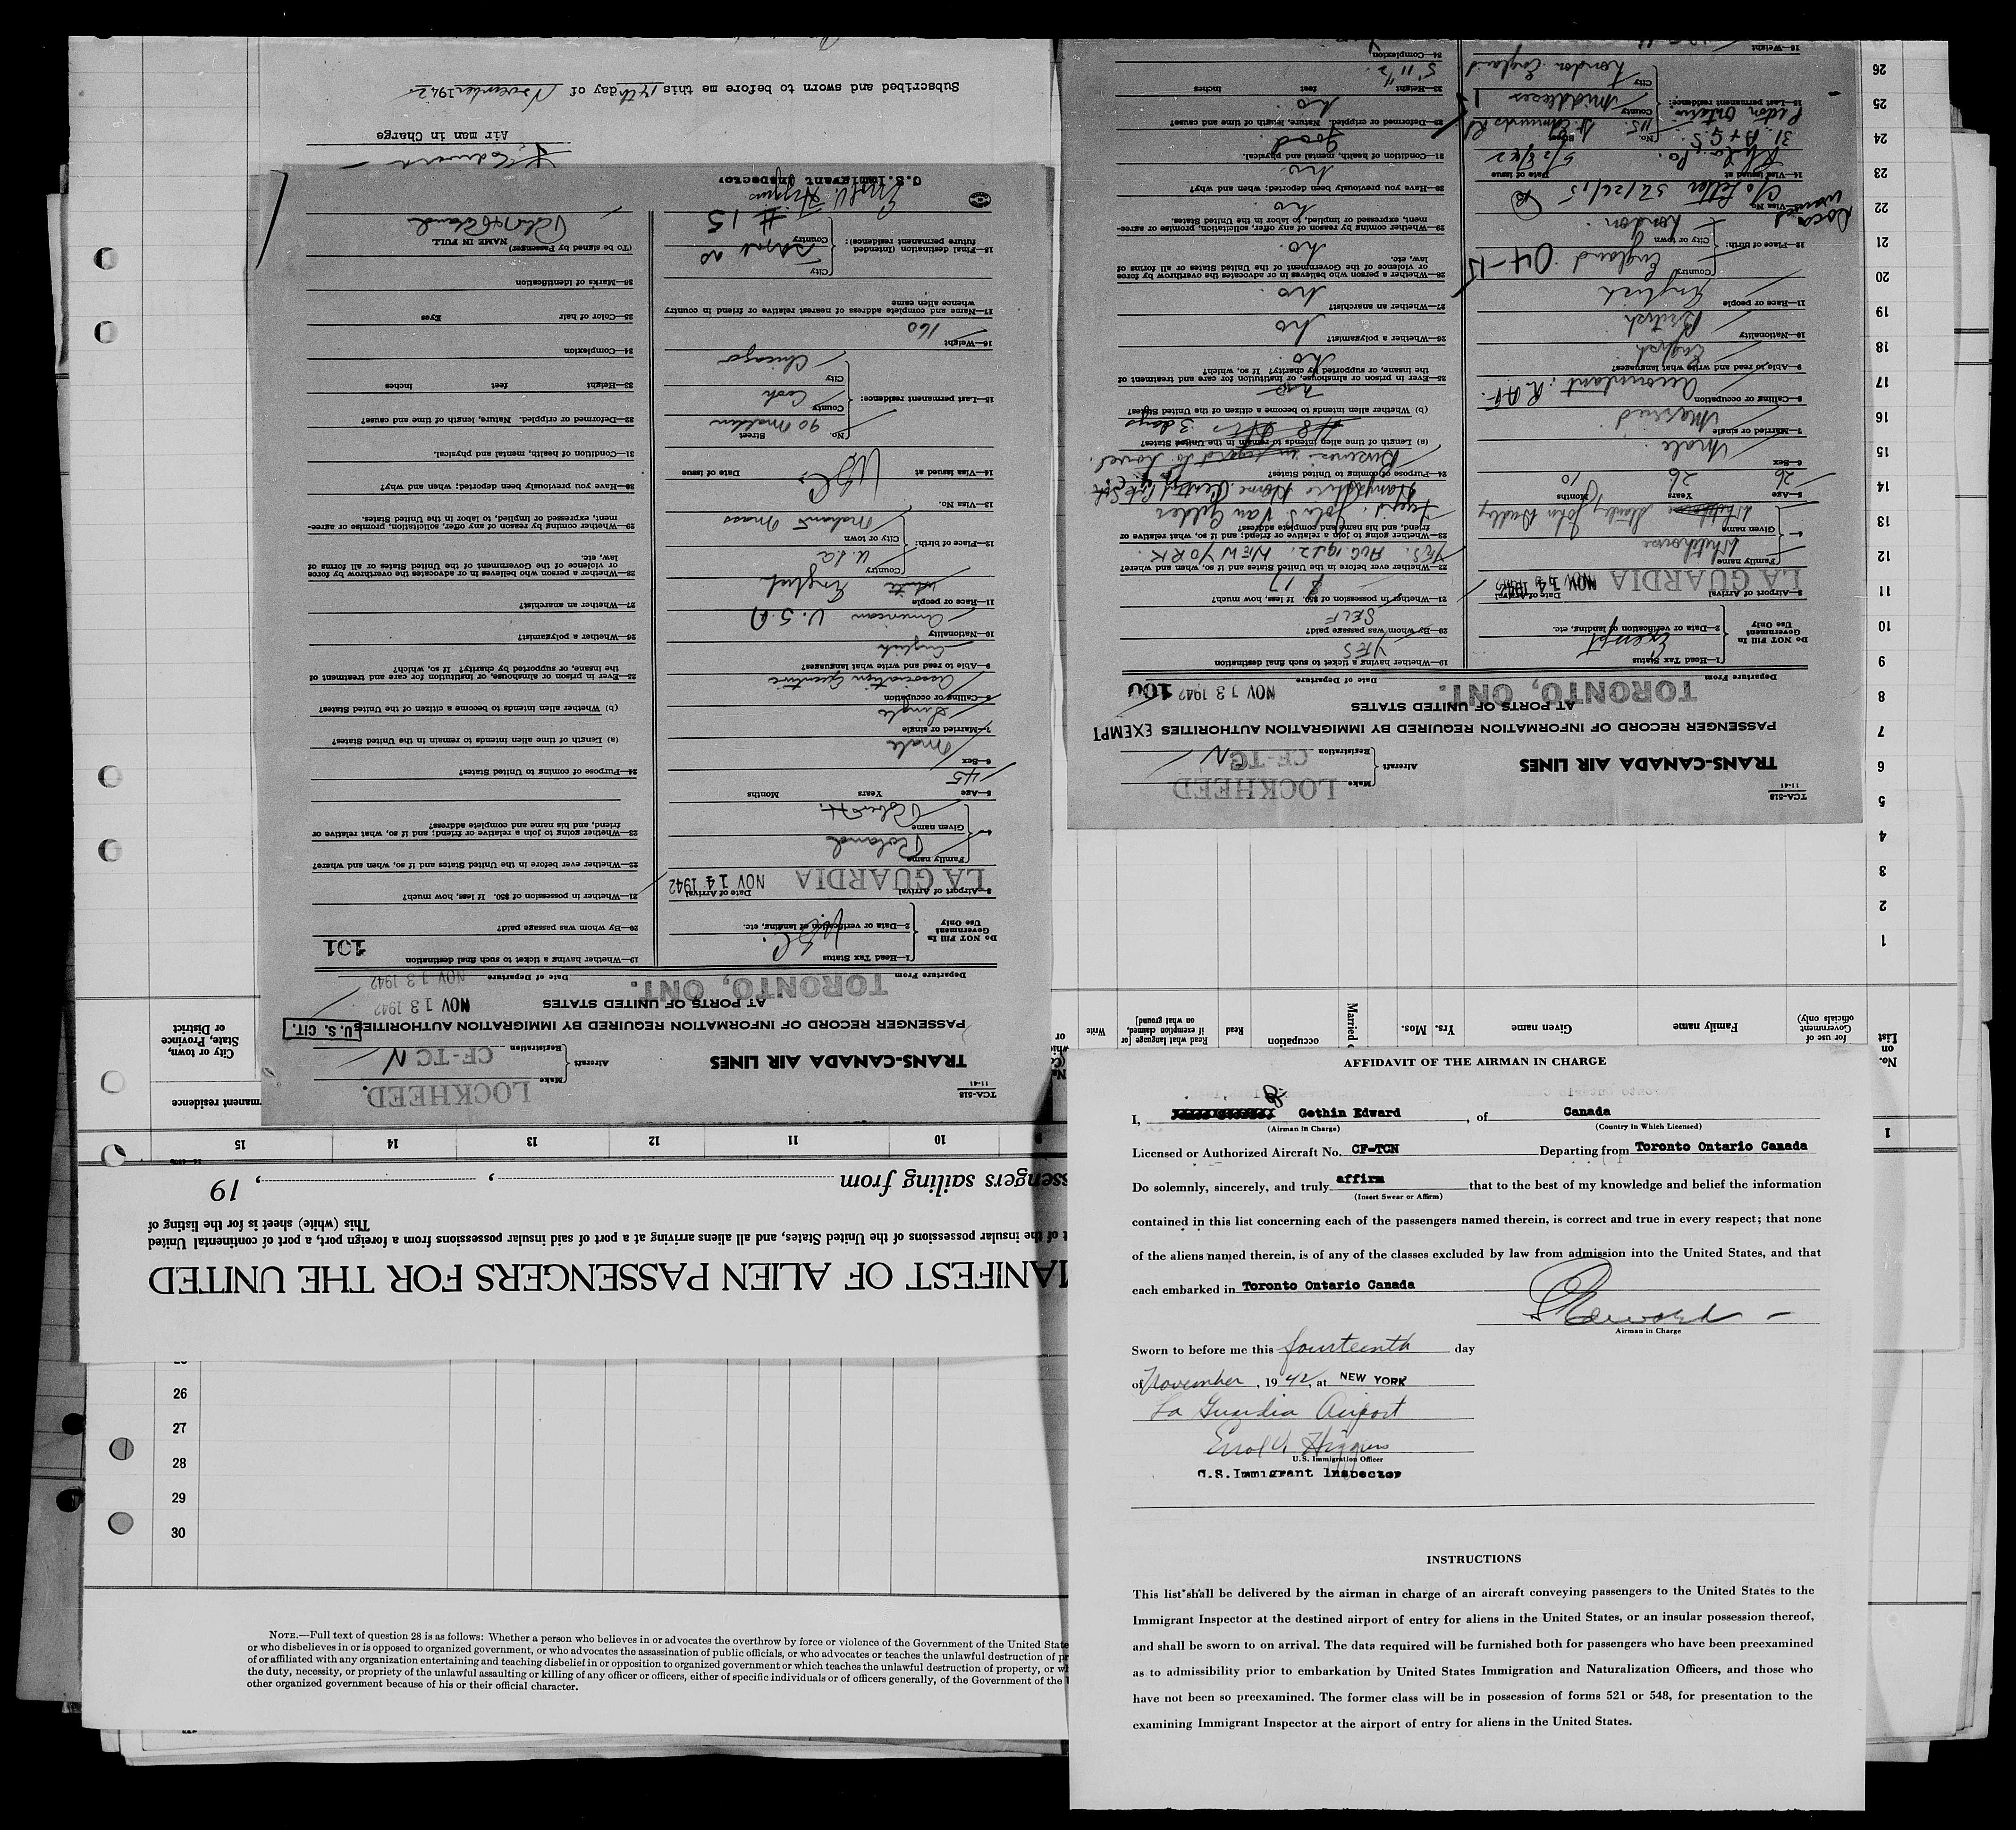 AFFIDAVIT OF THE AIRMAN IN CHARGE
I, Gethin Edward, of Canada
(Airman in Charge) (Country in Which Licensed)
Licensed or Authorized Aircraft No. CF-TCN Departing from Toronto Ontario Canada
Do solemnly, sincerely, and truly affirm that to the best of my knowledge and belief the information
(Insert Swear or Affirm)
contained in this list concerning each of the passengers named therein, is correct and true in every respect; that none
of the aliens named therein, is of any of the classes excluded by law from admission into the United States, and that
each embarked in Toronto Ontario Canada
Edward
Airman in Charge
Sworn to before me this fourteenth day
of November, 1942, at NEW YORK
La Guardia Airport
Errol V. Higgins
U.S. Immigration Officer
U.S. Immigrant Inspector
INSTRUCTIONS
This list shall be delivered by the airman in charge of an aircraft conveying passengers to the United States to the
Immigrant Inspector at the destined airport of entry for aliens in the United States, or an insular possession thereof,
and shall be sworn to on arrival. The data required will be furnished both for passengers who have been preexamined
as to admissibility prior to embarkation by United States Immigration and Naturalization Officers, and those who
have not been so preexamined. The former class will be in possession of forms 521 or 548, for presentation to the
examining Immigrant Inspector at the airport of entry for aliens in the United States.
26
27
28
29
30
NOTE.—Full text of question 28 is as follows: Whether a person who believes in or advocates the overthrow by force or violence of the Government of the United State
or who disbelieves in or is opposed to organized government, or who advocates the assassination of public officials, or who advocates or teaches the unlawful destruction of pr
of or affiliated with any organization entertaining and teaching disbelief in or opposition to organized government or which teaches the unlawful destruction of property, or wh
the duty, necessity, or propriety of the unlawful assaulting or killing of any officer or officers, either of specific individuals or of officers generally, of the Government of the
other organized government because of his or their official character.
ANIFEST OF ALIEN PASSENGERS FOR THE UNITED
of the insular possessions of the United States, and all aliens arriving at a port of said insular possessions from a foreign port, a port of continental United
This (white) sheet is for the listing of
ssengers sailing from , , 19
9 10 11 12 13 14 15
manent residence
City or town,
State, Province
or District
1
No.
on
List
for use of
Government
officials only)
Family name
Given name
Yrs. Mos.
Married
occupation
Read
Read what language [or
if exemption claimed,
on what ground]
Write
1
2
3
4
5
6
7
8
9
10
11
12
13
14
15
16
17
18
19
20
21
22
23
24
25
26
TCA-518
11-41
TRANS-CANADA AIR LINES
Aircraft
Make LOCKHEED
Registration CF-TC N
PASSENGER RECORD OF INFORMATION REQUIRED BY IMMIGRATION AUTHORITIES EXEMPT
AT PORTS OF UNITED STATES
Departure From TORONTO, ONT. Date of Departure NOV 13 1942 100
DO NOT FILL IN
Government
Use Only
1—Head Tax Status Exempt
2—Data or verification of landing, etc.
3—Airport of Arrival LA GUARDIA Date of Arrival NOV 14 1942
4— Family name Whitehouse
Given name Stanley John Dudley
5—Age 26 Years 26 Months 10
6—Sex Male
7—Married or single Married
8—Calling or occupation Accountant R.A.F.
9—Able to read and write what languages? English
10—Nationality British
11—Race or people English
12—Place of birth: Country England 04-15
City or town London
13—Visa No. c/o Letter
Docs waived
14—Visa issued at Phila. Pa. Date of issue 5/28/42
31 B + G.S.
Picton Ontario
15—Last permanent residence: No. 115 Street St. Edmunds Rd
County Middlesex
City London England
16—Weight
19—Whether having a ticket to such final destination YES
20—By whom was passage paid? SELF
21—Whether in possession of $50. If less, how much? $17
22—Whether ever before in the United States and if so, when and where?
YES. AUG. 1942. NEW YORK.
23—Whether going to join a relative or friend; and if so, what relative or
friend, and his name and complete address?
Friend: John S. Van Gilder
Hampshire House Central Pk Sth
24—Purpose of coming to United States?
Business in regard to Lovel.
(a) Length of time alien intends to remain in the United States?
48 Hrs 3 days
(b) Whether alien intends to become a citizen of the United States?
no
25—Ever in prison or almshouse, or institution for care and treatment of
the insane, or supported by charity? If so, which?
no.
26—Whether a polygamist? no
27—Whether an anarchist? no.
28—Whether a person who believes in or advocates the overthrow by force
or violence of the Government of the United States or all forms of
law, etc. no.
29—Whether coming by reason of any offer, solicitation, promise or agree-
ment, expressed or implied, to labor in the United States. no
30—Have you previously been deported; when and why? no.
31—Condition of health, mental and physical. Good
32—Deformed or crippled. Nature, length of time and cause? no.
33—Height feet inches 5' 11½
34—Complexion
TCA-518
11-41
TRANS-CANADA AIR LINES
Aircraft
Make LOCKHEED.
Registration CF-TC N
PASSENGER RECORD OF INFORMATION REQUIRED BY IMMIGRATION AUTHORITIES U. S. CIT.
AT PORTS OF UNITED STATES NOV 13 1942
Departure From TORONTO, ONT. Date of Departure NOV 13 1942
DO NOT FILL IN
Government
Use Only
1—Head Tax Status
2—Data or verification of landing, etc. USC.
3—Airport of Arrival LA GUARDIA Date of Arrival NOV 14 1942
4— Family name Roland
Given name Robert H.
5—Age Years Months 45
6—Sex Male
7—Married or single Single
8—Calling or occupation Association Executive
9—Able to read and write what languages? English
10—Nationality American U.S.A
11—Race or people White English
12—Place of birth: Country U.S.A
City or town Nahant Mass
13—Visa No.
14—Visa issued at Date of issue USC.
15—Last permanent residence: No. Street 90 Malden
County Cook
City Chicago
16—Weight 160
17—Name and complete address of nearest relative or friend in country
whence alien came
18—Final destination (intended
future permanent residence): City Same as
Country # 15
Errol V. Higgins
U.S. Immigrant Inspector
19—Whether having a ticket to such final destination 101
20—By whom was passage paid?
21—Whether in possession of $50. If less, how much?
22—Whether ever before in the United States and if so, when and where?
23—Whether going to join a relative or friend; and if so, what relative or
friend, and his name and complete address?
24—Purpose of coming to United States?
(a) Length of time alien intends to remain in the United States?
(b) Whether alien intends to become a citizen of the United States?
25—Ever in prison or almshouse, or institution for care and treatment of
the insane, or supported by charity? If so, which?
26—Whether a polygamist?
27—Whether an anarchist?
28—Whether a person who believes in or advocates the overthrow by force
or violence of the Government of the United States or all forms of
law, etc.
29—Whether coming by reason of any offer, solicitation, promise or agree-
ment, expressed or implied, to labor in the United States.
30—Have you previously been deported; when and why?
31—Condition of health, mental and physical.
32—Deformed or crippled. Nature, length of time and cause?
33—Height feet inches
34—Complexion
35—Color of hair Eyes
36—Marks of identification
(To be signed by Passenger)
NAME IN FULL
Robt H Roland
Edward
Air man in Charge
Subscribed and sworn to before me this 14th day of November 1942